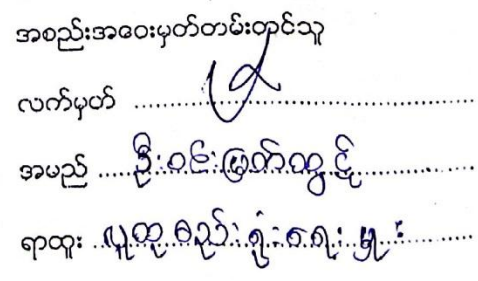 အစည်းအဝေးမှတ်တမ်းတင်သူ
လက်မှတ်
အမည် ဦးဝင်းမြတ်ထွဋ်
ရာထူး လူထုစည်းရုံးရေးမှူး